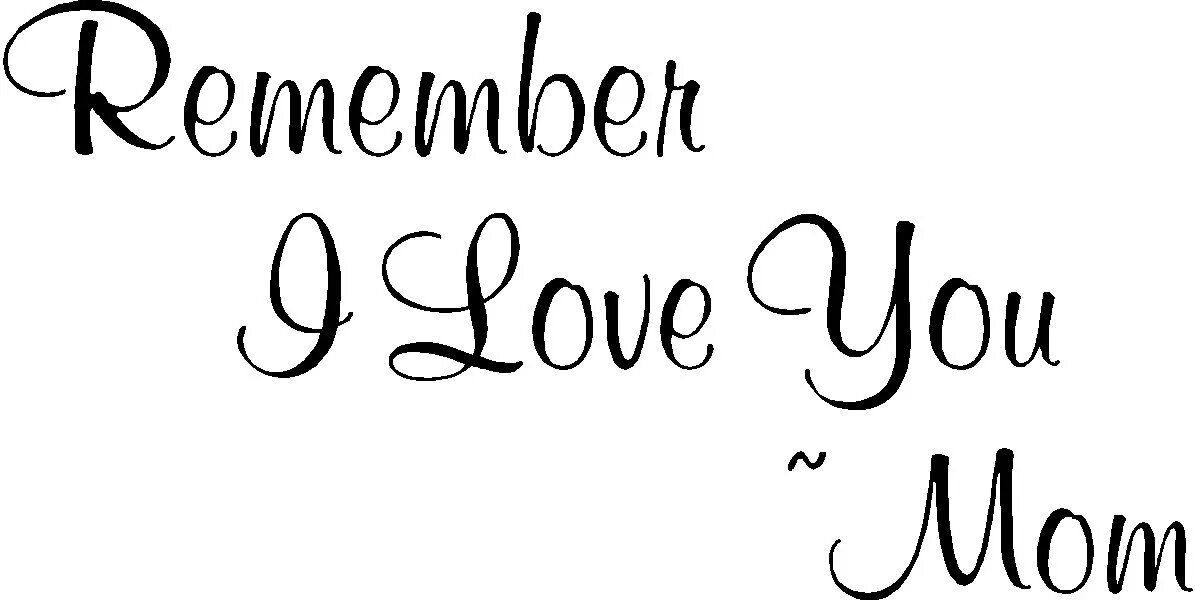 Remember
I Love You
~ Mom